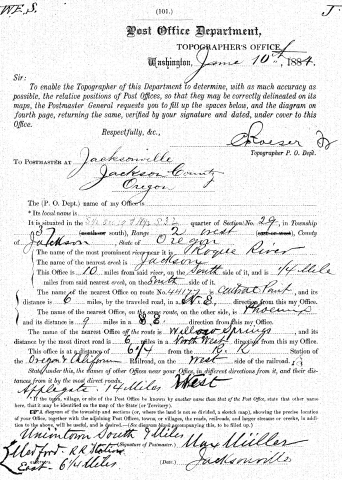 (101.)
Post Office Department,
TOPOGRAPHER'S OFFICE,
Washington, June 10th, 1884.
Sir:
To enable the Topographer of this Department to determine, with as much accuracy as
possible, the relative positions of Post Offices, so that they may be correctly delineated on its
maps, the Postmaster General requests you to fill up the spaces below, and the diagram on
fourth page, returning the same, verified by your signature and dated, under cover to this
Office.
Respectfully, &c.,
Topographer P. O. Dept.
TO POSTMASTER AT Jacksonville
Jackson County
Oregon
The (P. O. Dept.) name of my Office is
Its local name is
It is situated in the quarter of Section No. 29, in Township
37 Range 2 West County
of Jackson, State of Oregon
The name of the most prominent river near it is Rogue River
The name of the nearest creek is Jackson
This Office is 10 miles from said river, on the South side of it, and is 1/4 Mile
miles from said nearest creek, on the South side of it.
The name of the nearest Office on route No. 44177 is Central Point, and its
distance is 6 miles, by the traveled road, in a N. E. direction from this my Office.
The name of the nearest Office, on the same route, on the other side, is Phoenix
and its distance is 9 miles in a S. E. direction from this my Office.
The name of the nearest Office off the route is Willow Springs, and its
distance by the most direct road is 6 miles in a North West direction from this my Office.
This office is at a distance of 6 1/4 from the R. R. Station of the
Oregon & California Railroad, on the West side of the railroad.
State under this, the names of other Offices near your Office, in different directions from it, and their dis-
tances from it by the most direct roads.
Applegate 14 Miles West
If the town, village, or site of the Post Office be known by another name than that of the Post Office, state that other
name here, that it may be identified on the map of the State (or Territory)
A diagram of the township and sections (or, where the land is not so divided, a sketch map), showing the precise location
of your Office, together with the adjoining Post Offices, towns, or villages, the roads, railroads, and larger streams or creeks, in addi-
tion to the above, will be useful, and is desired.
Uniontown South 7 Miles
(Signature of Postmaster.) Max Müller
Medford R. R. Station
East 6 1/4 Miles
(Date.) Jacksonville